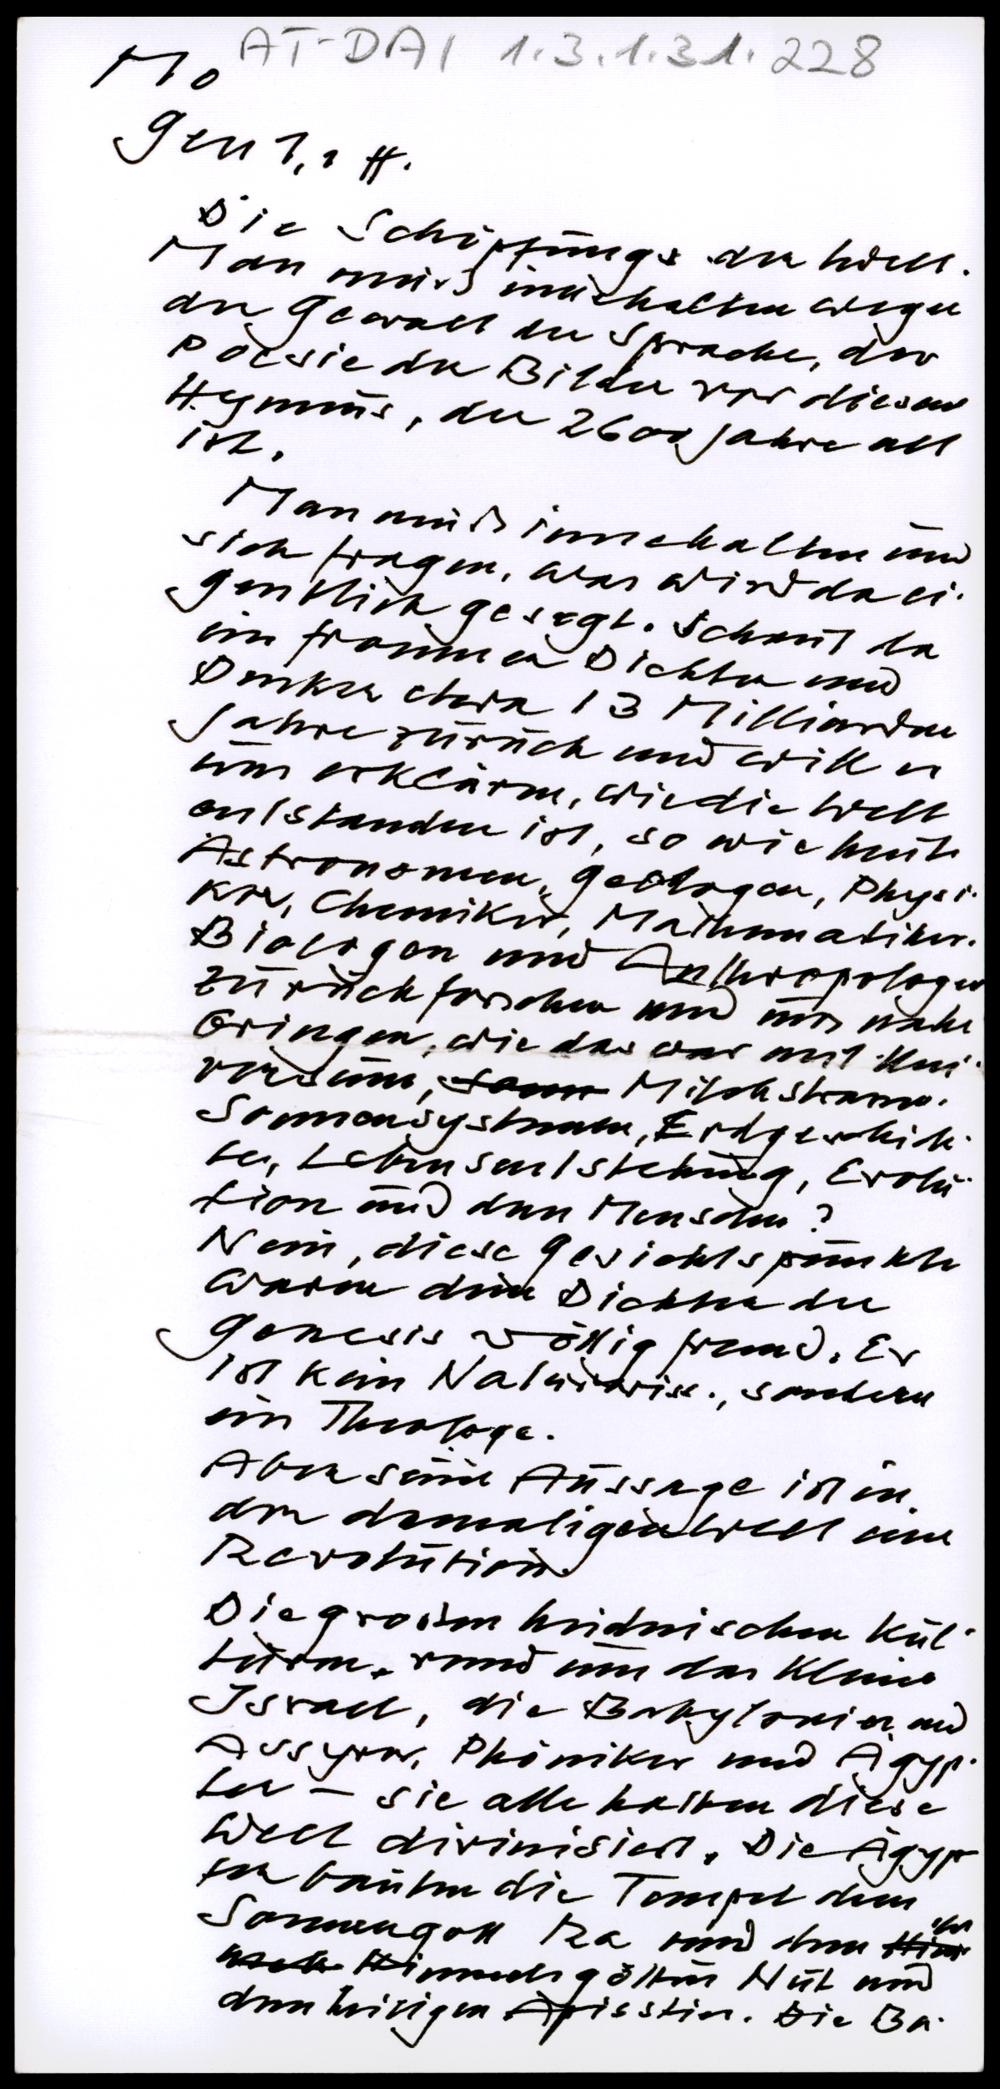 AT-DAI 1.3.1.31.228
Mo
Gen 1,1 ff.
Die Schöpfung der Welt.
Man muß innehalten wegen
der Gewalt der Sprache, der
Poesie der Bilder vor diesem
Hymnus, der 2600 Jahre alt
ist.
Man muß innehalten und
sich fragen, was wird da ei-
gentlich gesagt. Schaut da
ein frommer Dichter und
Denker etwa 13 Milliarden
Jahre zurück und will er
uns erklären, wie die Welt
entstanden ist, so wie heute
Astronomen, Geologen, Physi-
ker, Chemiker, Mathematiker,
Biologen und Anthropologen
zurückforschen und uns nahe
bringen, wie das war mit Uni-
versum, Milchstrasse,
Sonnensystemen, Erdgeschich-
te, Lebensentstehung, Evolu-
tion und dem Menschen?
Nein, diese Gesichtspunkte
waren dem Dichter der
Genesis völlig fremd. Er
ist kein Naturwiss., sondern
ein Theologe.
Aber seine Aussage ist in
der damaligen Welt eine
Revolution.
Die grossen heidnischen Kul-
turen, rund um das kleine
Israel, die Babylonier und
Assyrer, Phöniker und Ägyp-
ter – sie alle hatten diese
Welt divinisiert. Die Ägyp
ter bauten die Tempel dem
Sonnengott Ra und der
Himmelsgöttin Nut und
dem heiligen Apisstier. Die Ba-